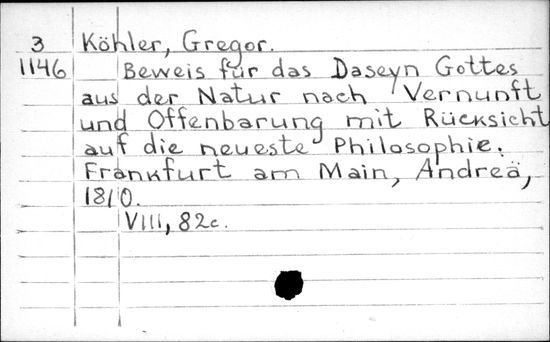 3 Köhler, Gregor.
1146 Beweis für das Daseyn Gottes
aus der Natur nach Vernunft
und Offenbarung mit Rücksicht
auf die neueste Philosophie.
Frankfurt am Main, Andreä,
1810.
VIII, 82c.